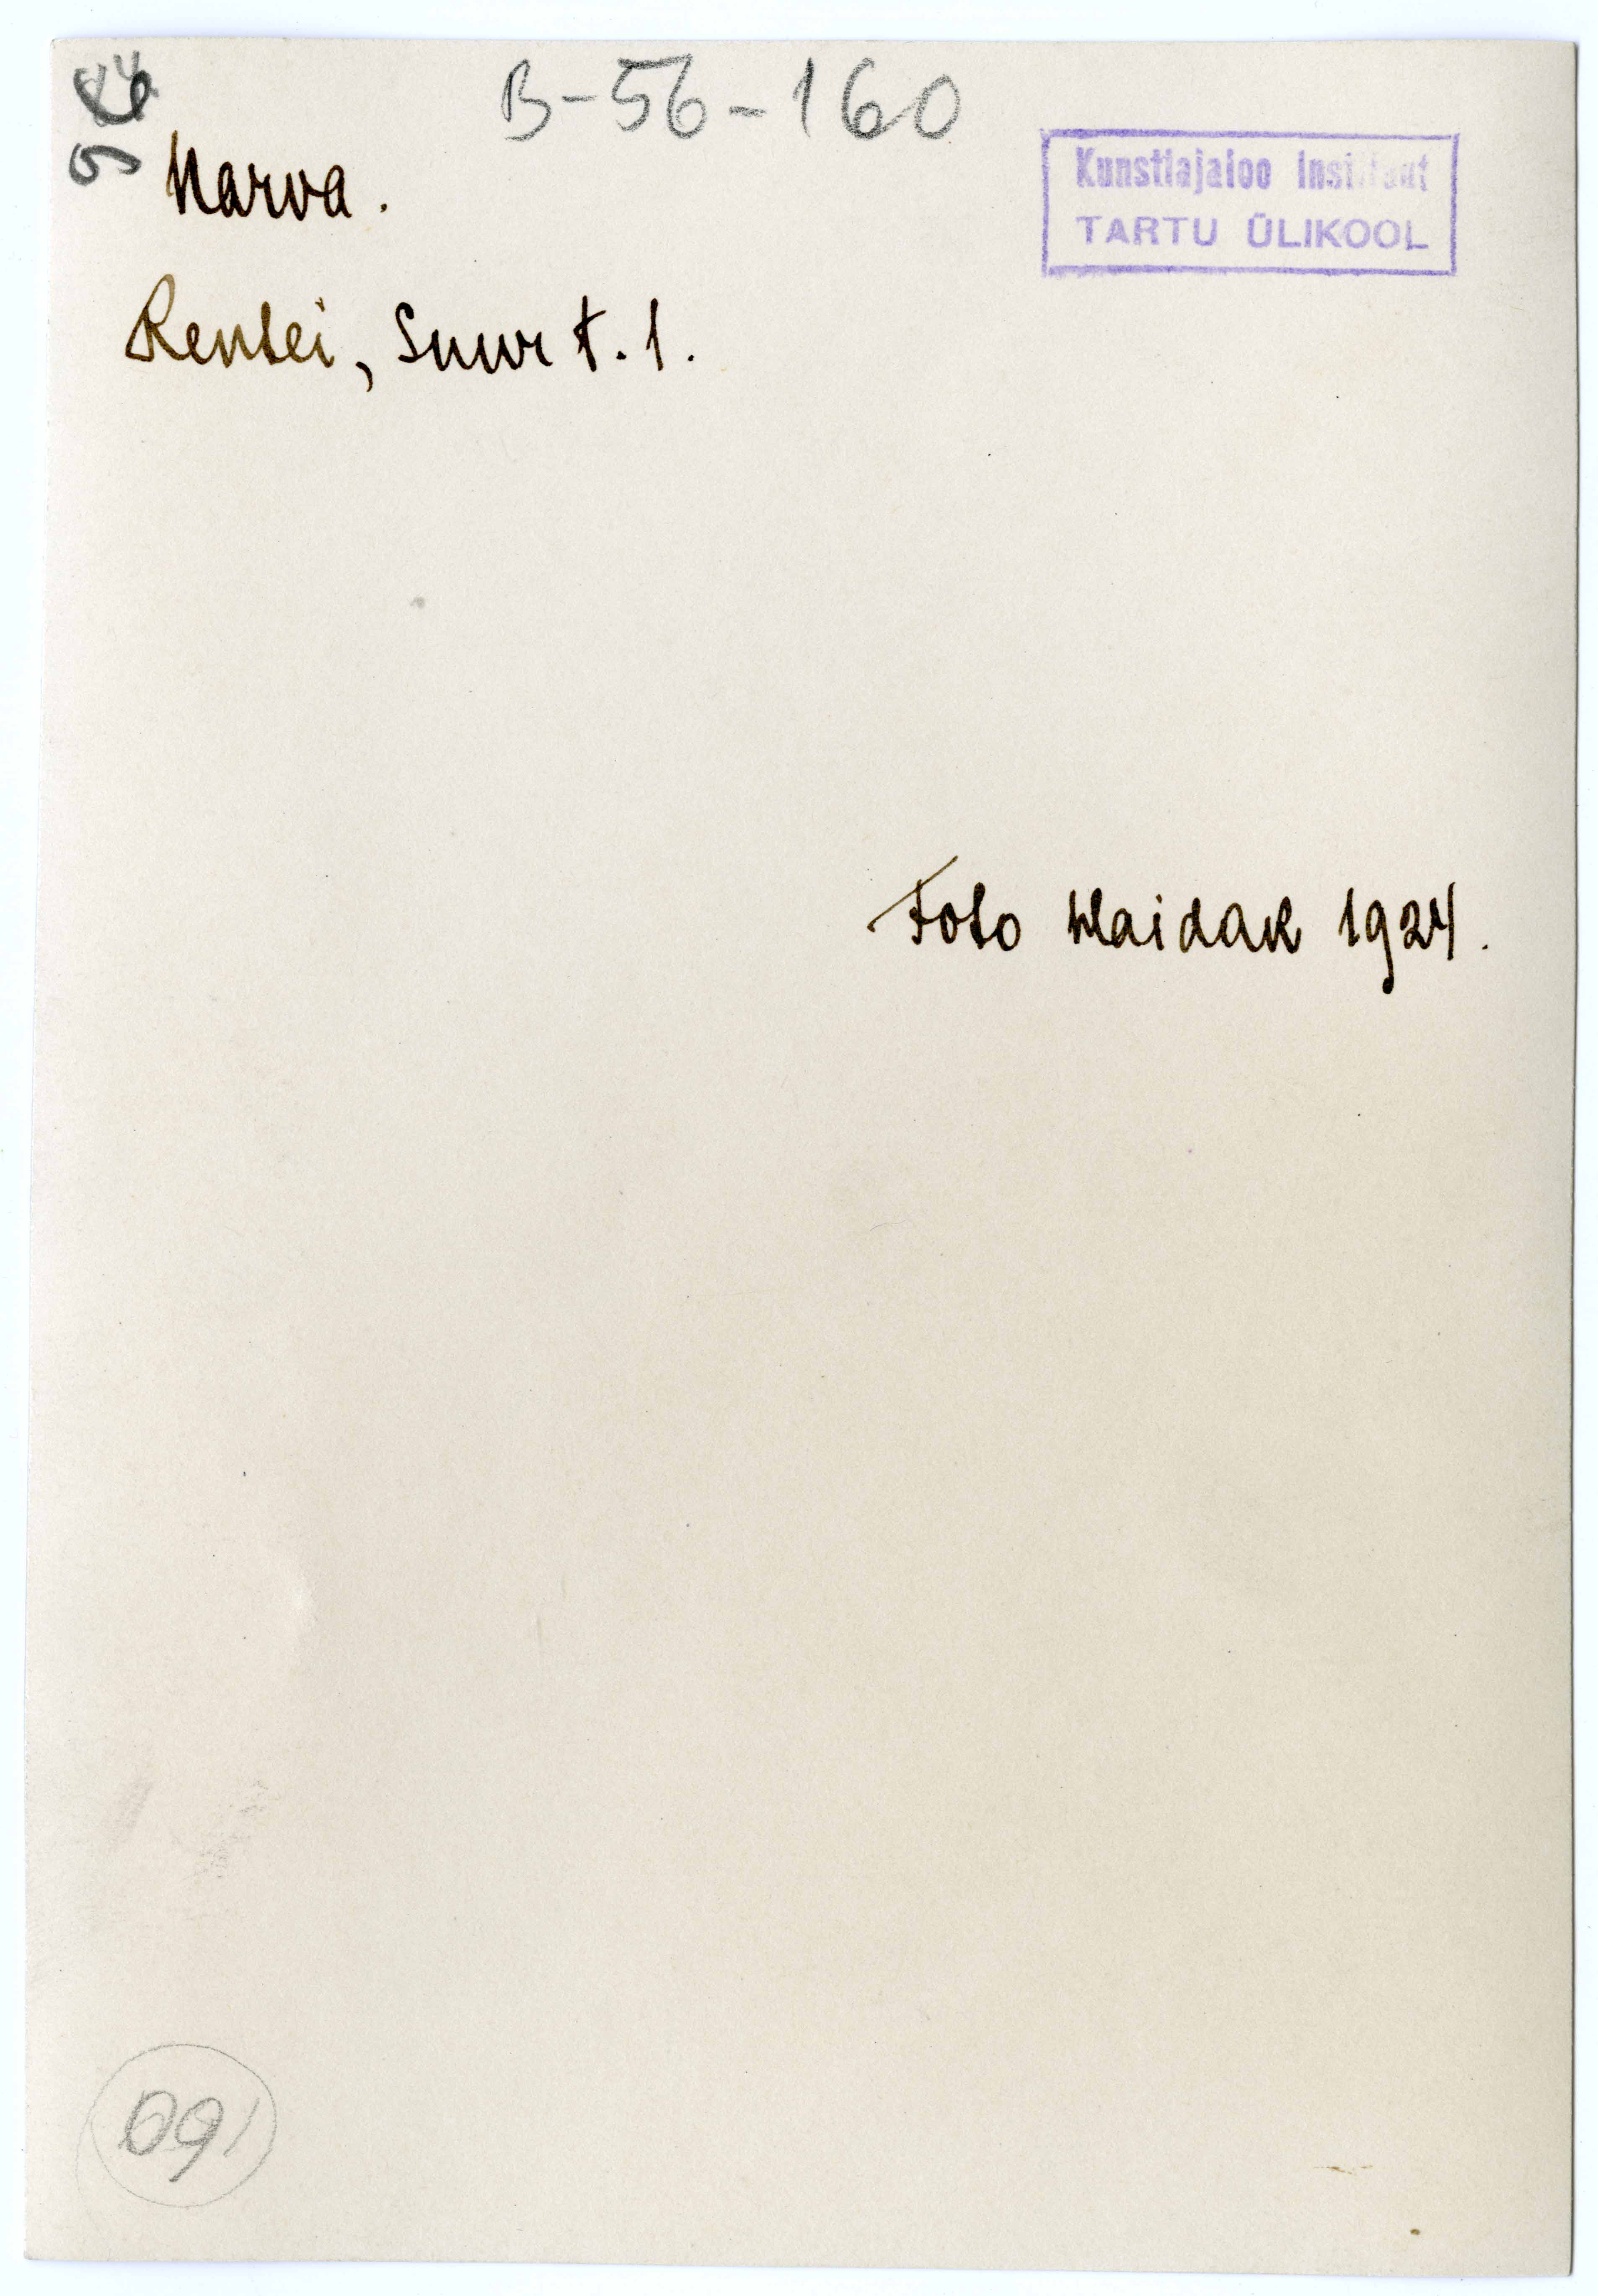 B-56-160
Narva.
Kunstiajaloo Instituut
TARTU ÜLIKOOL
Rentei, Suur t. 1.
Foto Maidak 1924.
160